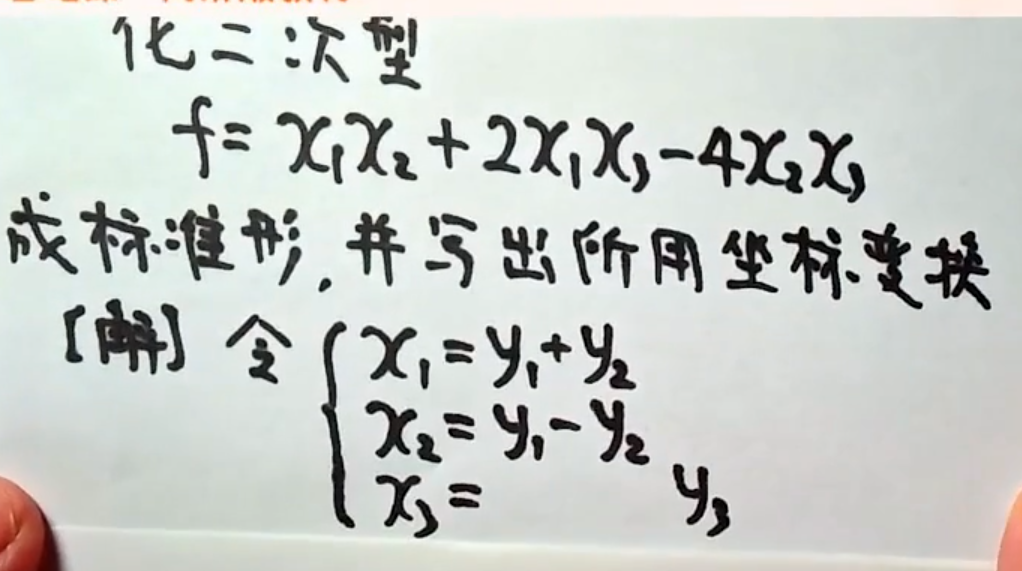 化二次型
f = x₁x₂ + 2x₁x₃ - 4x₂x₃
成标准形, 并写出所用坐标变换
[解] 令 { x₁ = y₁ + y₂
x₂ = y₁ - y₂
x₃ = y₃